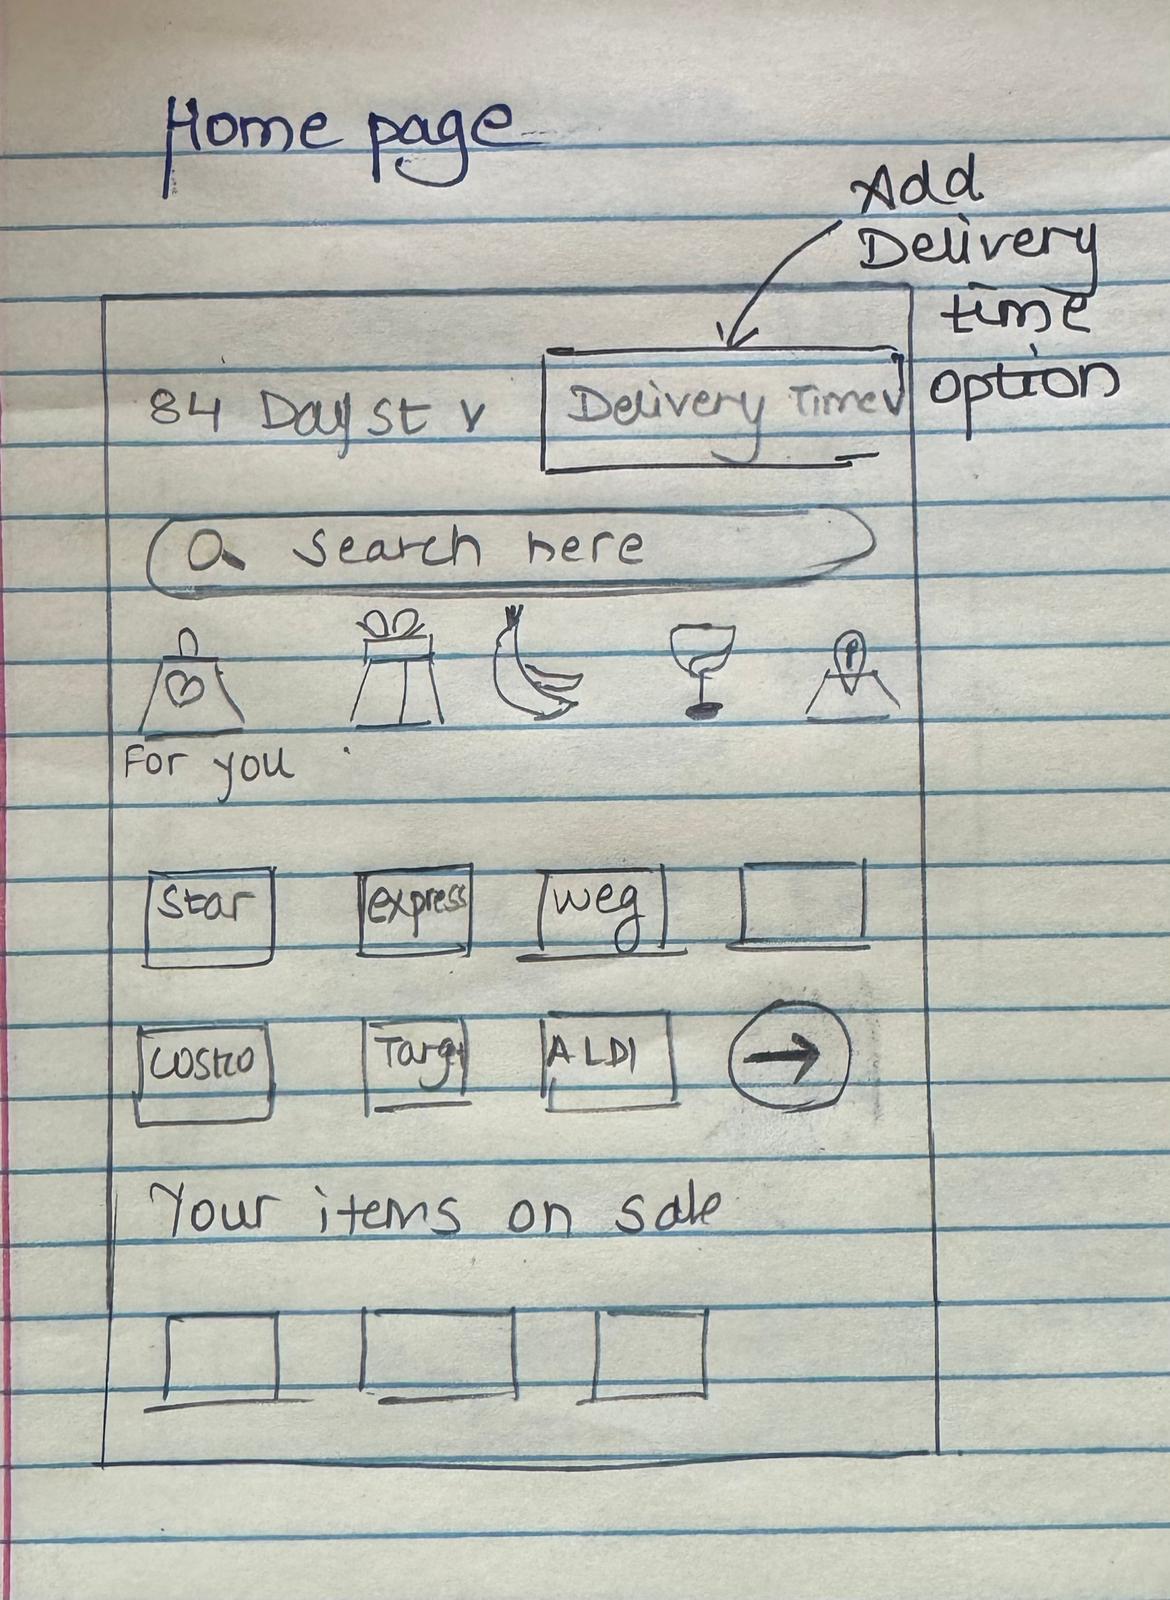 Home page
Add
Delivery
time
option
84 Day St v
Delivery Time v
Search here
For you
Star
express
weg
Costco
Targt
ALDI
Your items on sale